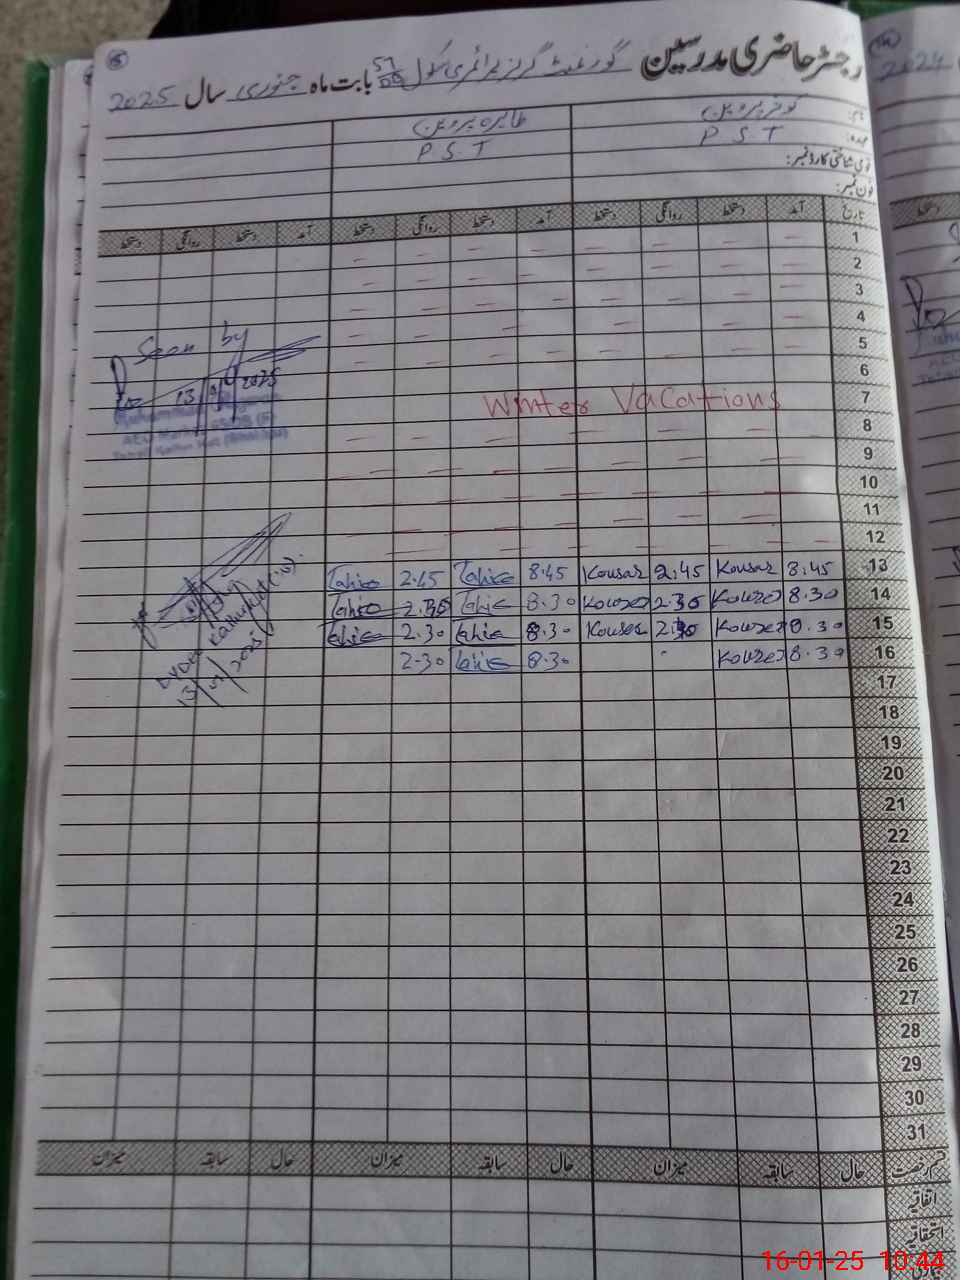 رجسٹر حاضری مدرسین گورنمنٹ گرلز پرائمری سکول 57/DB بابت ماہ جنوری سال 2025
2024
نام: کوثر پروین طاہرہ پروین
عہدہ: PST PST
قومی شناختی کارڈ نمبر:
فون نمبر:
تاریخ آمد دستخط روانگی دستخط آمد دستخط روانگی دستخط آمد دستخط روانگی دستخط
1
2
3
4
5
Seen by
6
13/1/2025
7 Winter Vacations
8
9
10
11
12
13 8:45 Kousar 2:45 Kousar 8:45 Tahira 2:45 Tahira
14 8.30 Kousar 2.30 Kousar 8.30 Tahira 2.30 Tahira
15 8.30 Kousar 2.30 Kousar 8.30 Tahira 2.30 Tahira
16 8.30 Kousar 8.30 Tahira 2.30
17
13/01/2025
18
19
20
21
22
23
24
25
26
27
28
29
30
31
قسم رخصت حال سابقہ میزان حال سابقہ میزان حال سابقہ میزان
اتفاقیہ
استحقاقیہ
16-01-25 10:44